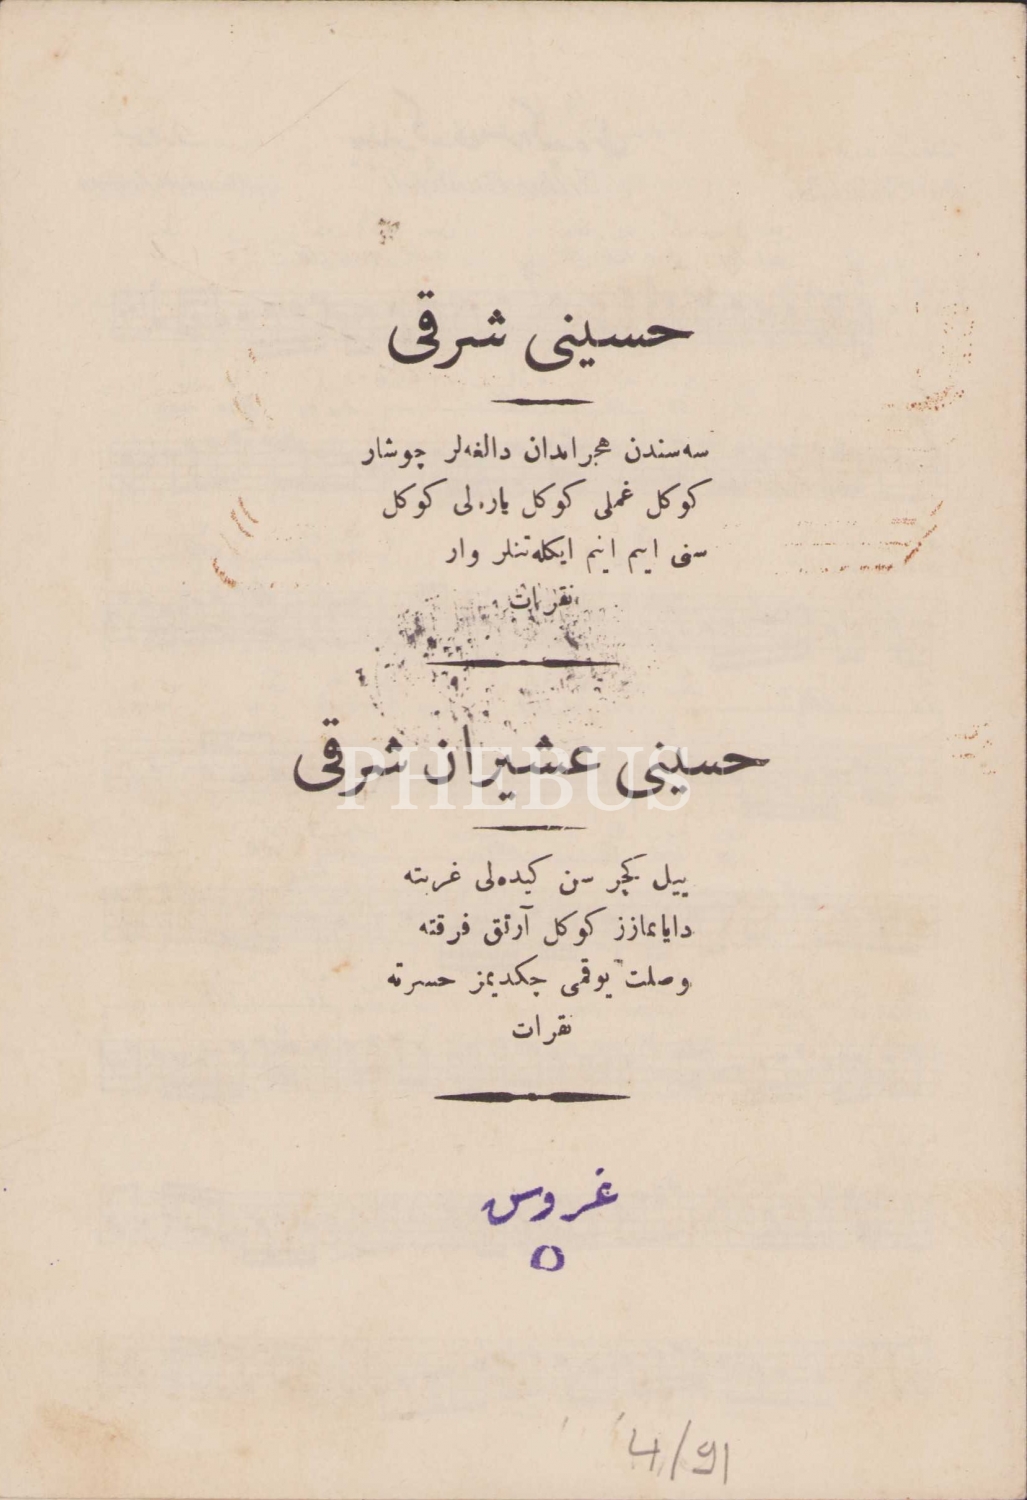 حسینی شرقی
سه سندن هجر امدان دالغه لر چوشار
کوکل غملی کوکل یاره لی کوکل
سنی ایم انیم ایکله تنلر وار
نقرات
حسینی عشیران شرقی
PHEBUS
ییل کچر سن کیده لی غربته
دایانمازز کوکل آرتق فرقته
وصلت یوقمی چکدیمز حسرته
نقرات
غروس
٥
4/91